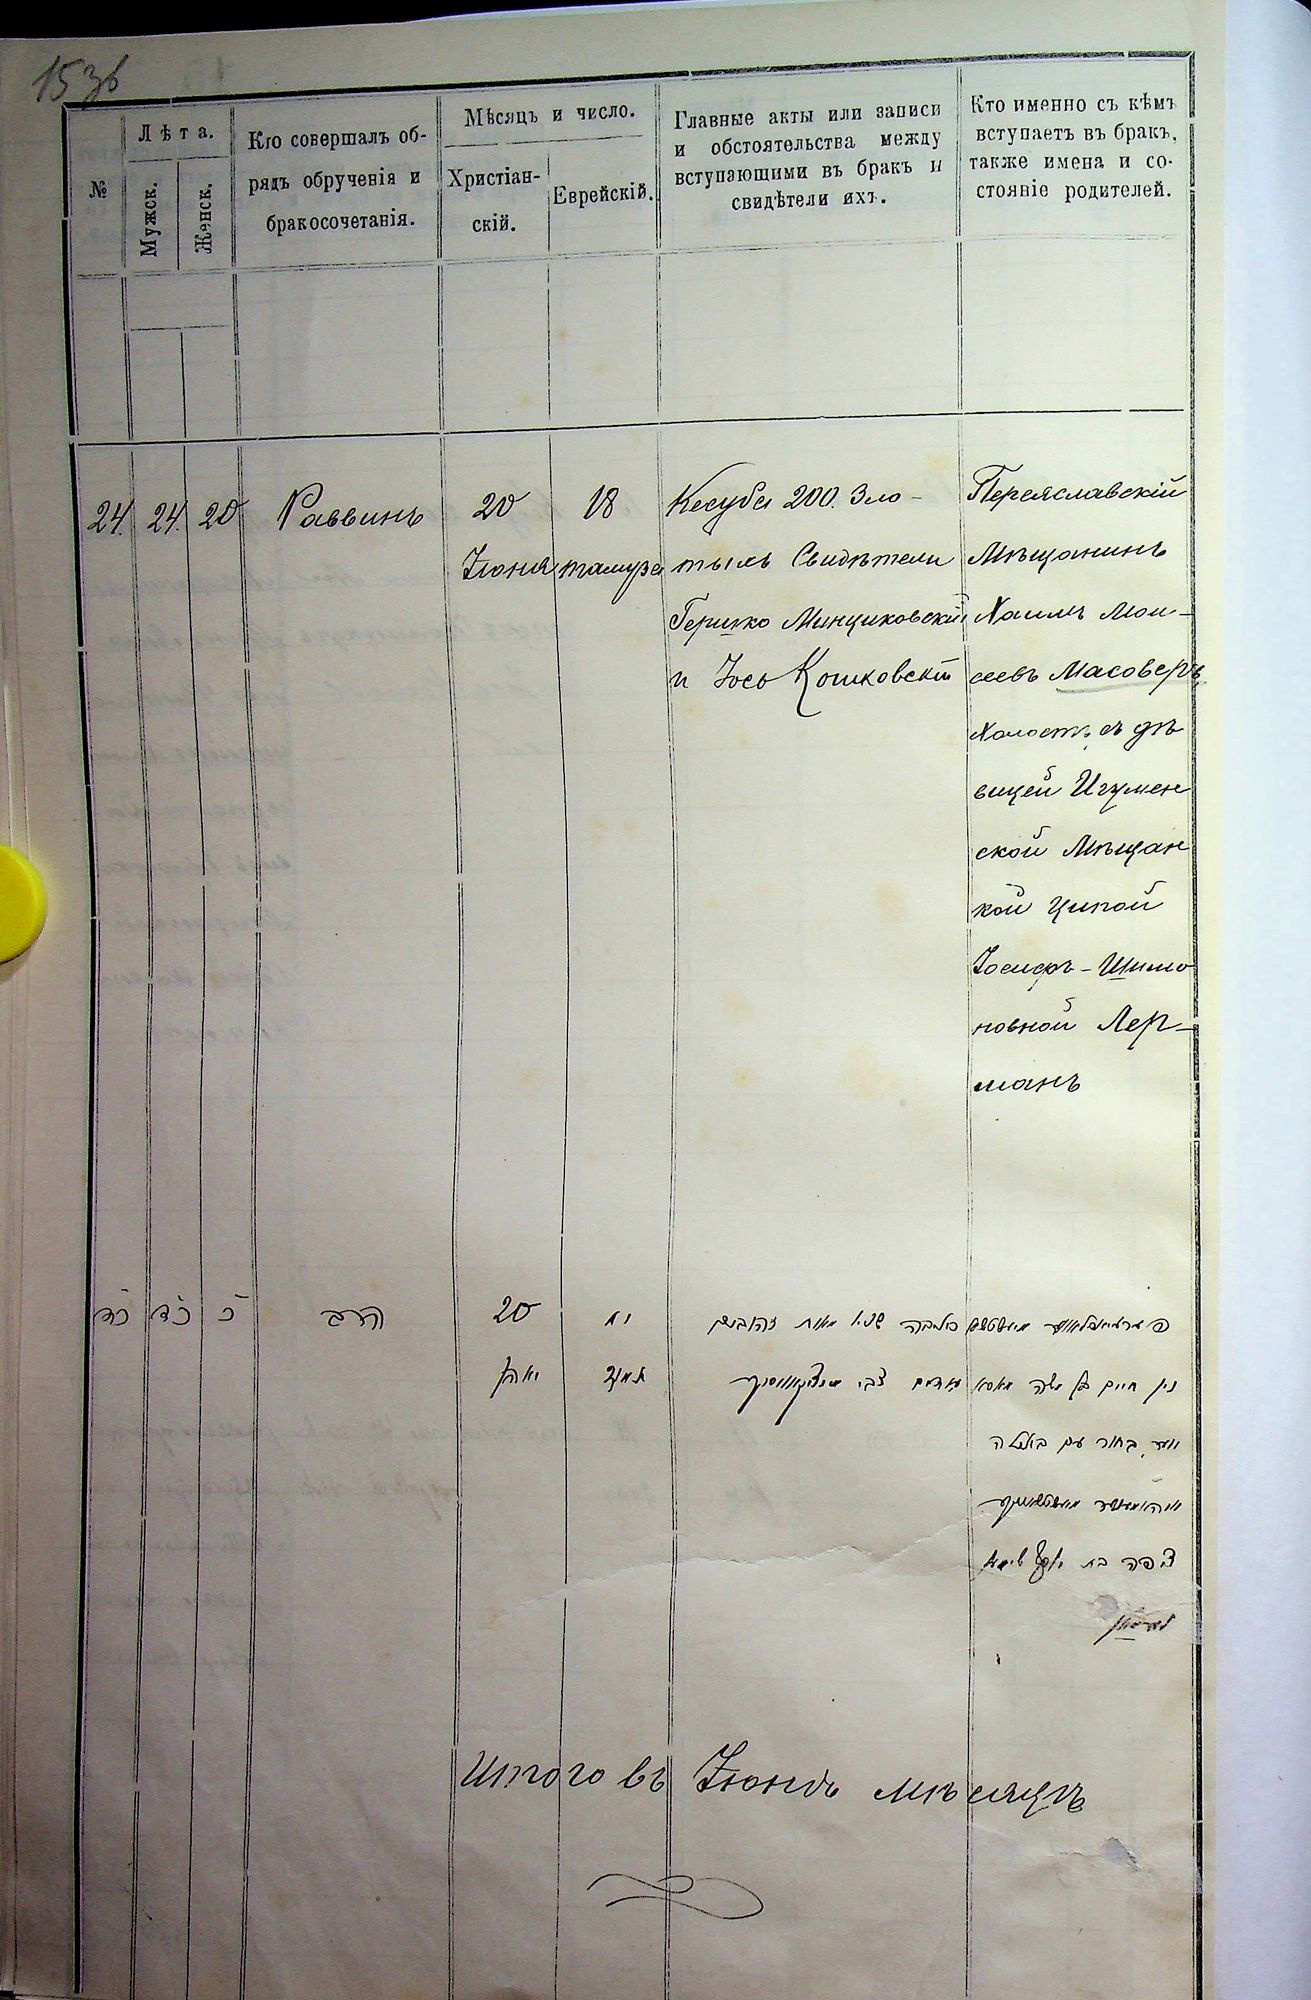 153б
№
Лѣта.
Мужск.
Женск.
Кто совершалъ об-
рядъ обрученія и
бракосочетанія.
Мѣсяцъ и число.
Христіан-
скій.
Еврейскій.
Главные акты или записи
и обстоятельства между
вступающими въ бракъ и
свидѣтели ихъ.
Кто именно съ кѣмъ
вступаетъ въ бракъ,
также имена и со-
стояніе родителей.
24. 24. 20 Раввинъ
20
Іюня
18
тамуза
Кесуба 200. Зло-
тыхъ Свидѣтели
Гершко Минциковскій
и Іось Кошковскій
Переяславскій
Мѣщанинъ
Хаимъ Мои-
сеевъ Масоверъ
Холостъ, съ дѣ
вицей Игумен
ской Мѣщан
кой Ципой
Іосифъ-Шимо
новной Лер-
манъ
כד כד כ הרב
20
יאהן
יח
תמוז
כתובה מאות זהובים
צבי
חיים בן משה מאסא
בחור עם בתולה
ציפה בת יוסף שימאן
לערמאן
Итого въ Іюнѣ мѣсяцѣ